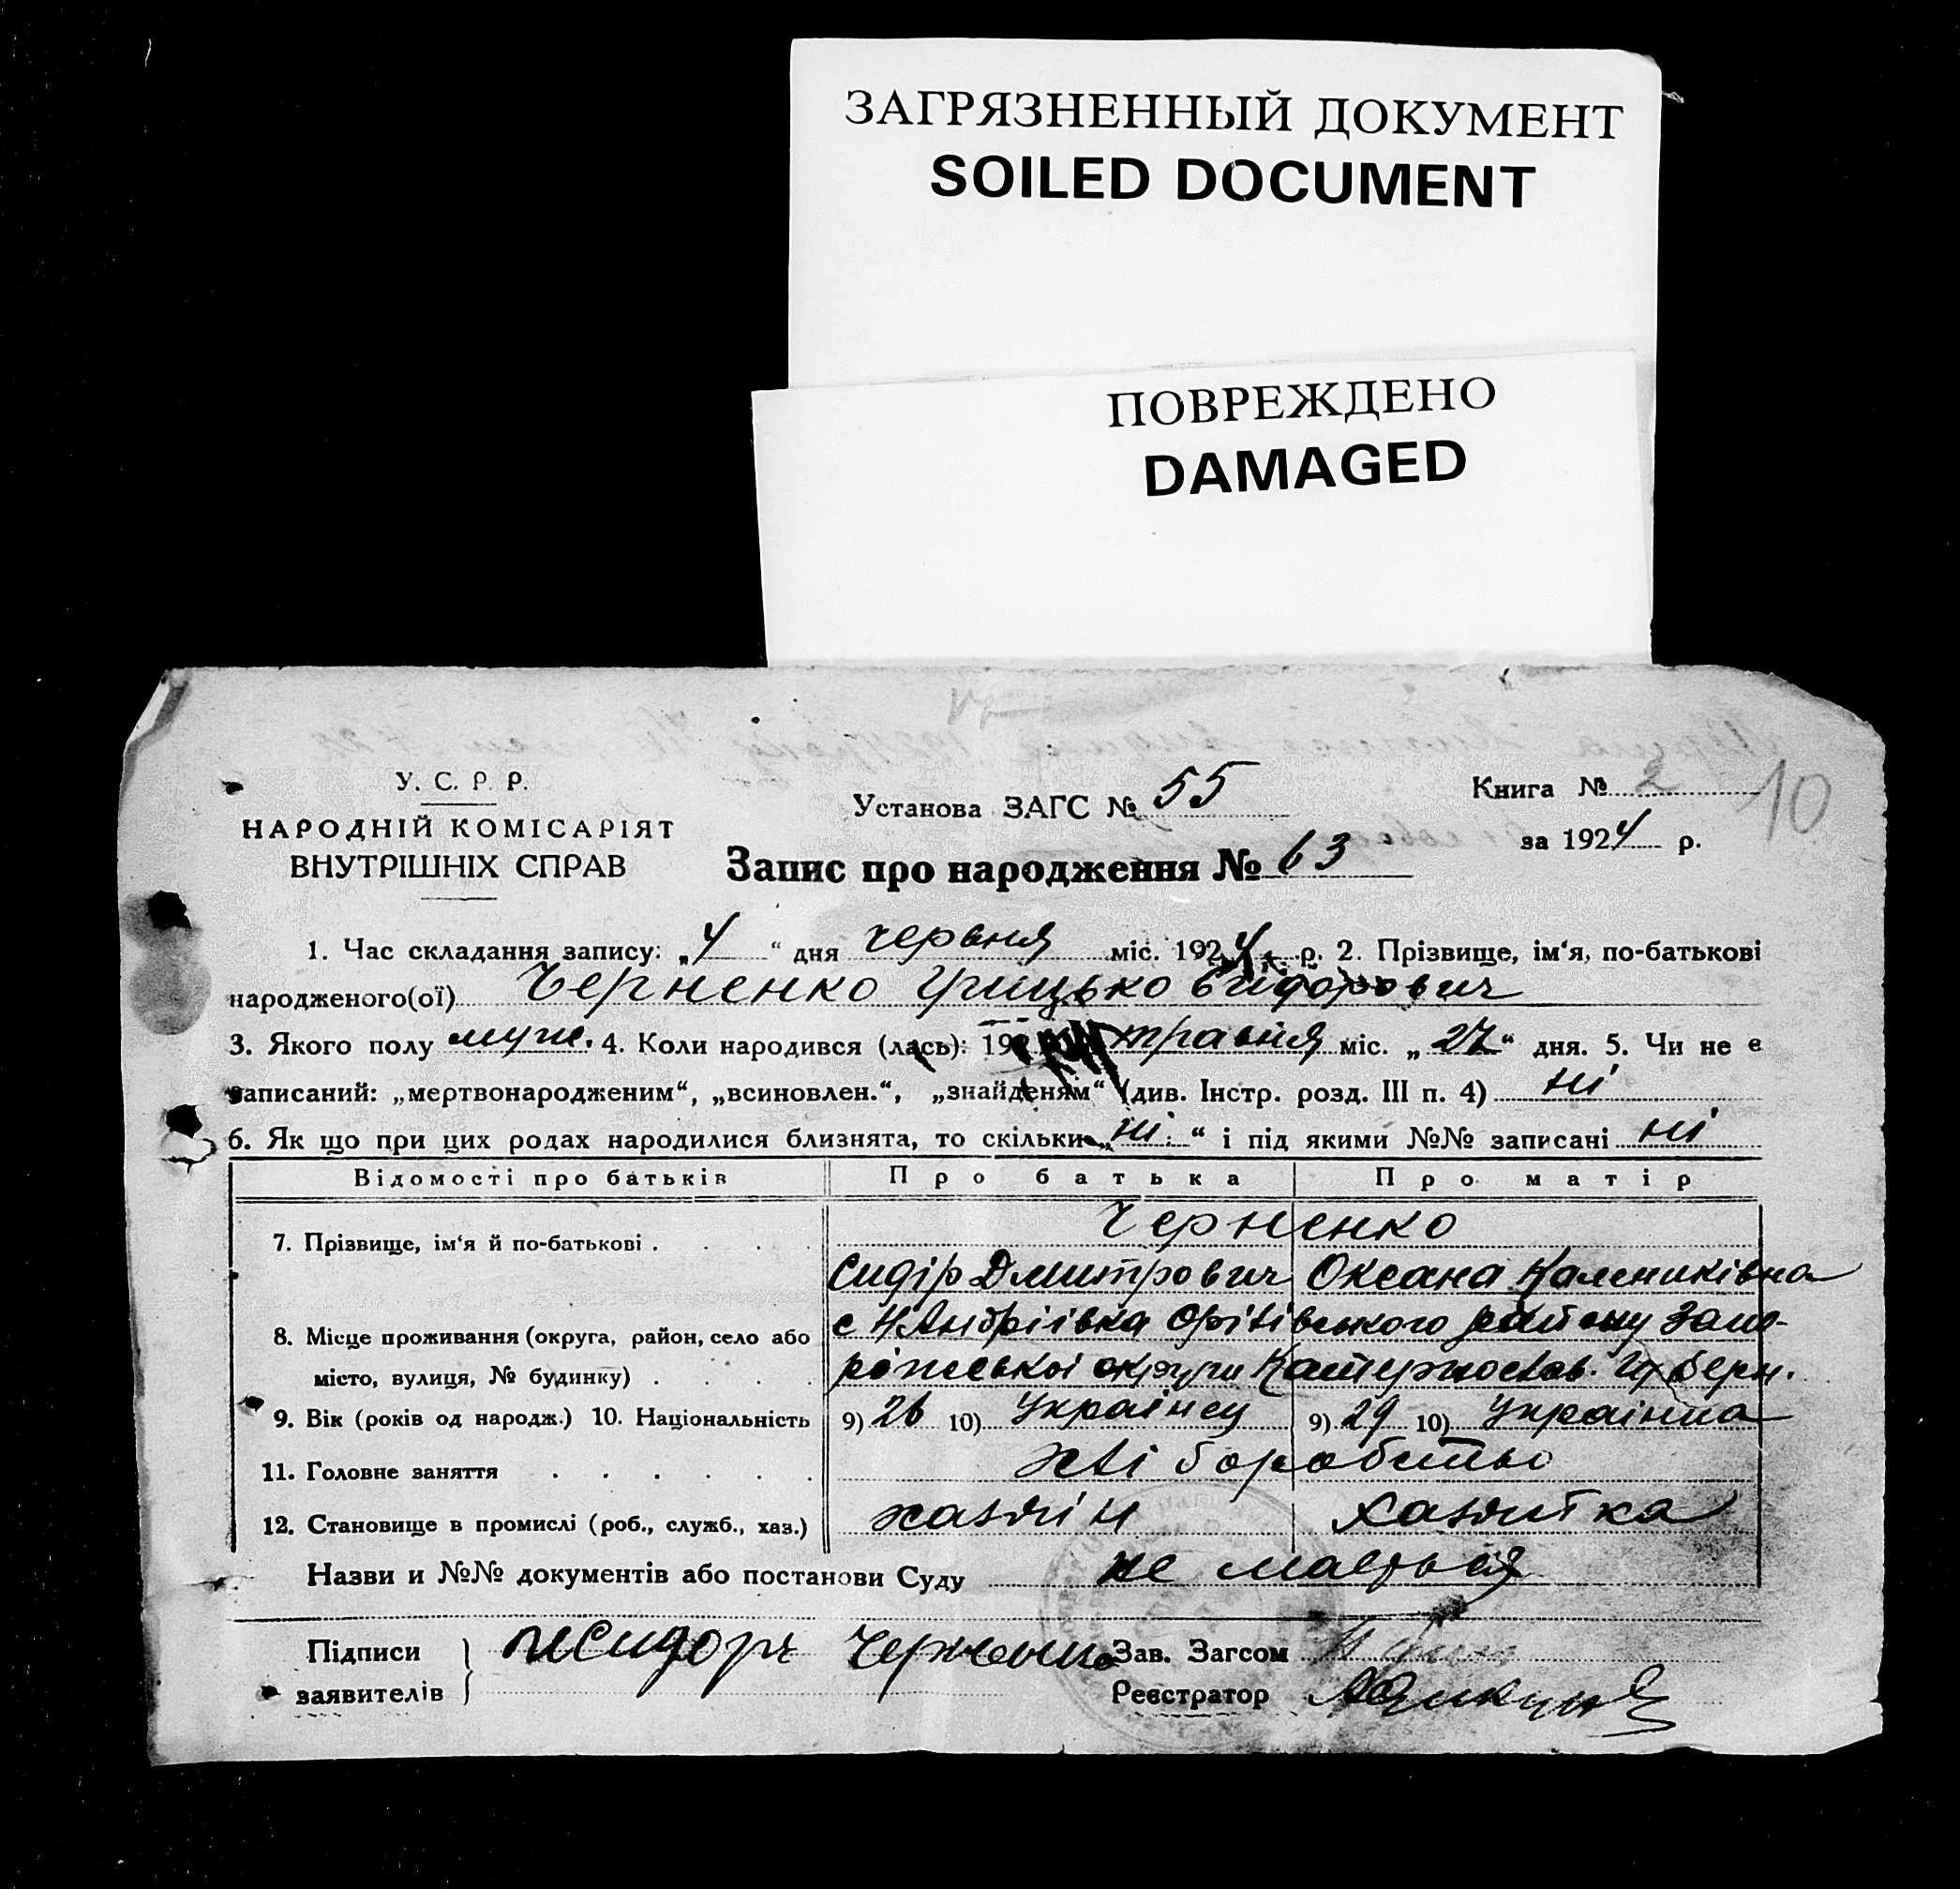 ЗАГРЯЗНЕННЫЙ ДОКУМЕНТ
SOILED DOCUMENT
ПОВРЕЖДЕНО
DAMAGED
У. С. Р. Р.
НАРОДНІЙ КОМІСАРІЯТ
ВНУТРІШНІХ СПРАВ
Установа ЗАГС № 55
Книга № 2
10
за 1924 р.
Запис про народження № 63
1. Час складання запису: „4“ дня червня міс. 1924 р. 2. Прізвище, ім‘я, по-батькові
народженого(ої) Черненко Грицько Сидорович
3. Якого полу муж. 4. Коли народився (лась): 192 травня міс. „27“ дня. 5. Чи не є
записаний: „мертвонародженим“, „всиновлен.“, „знайденям“ (див. Інстр. розд. III п. 4) ні
6. Як що при цих родах народилися близнята, то скільки „ні“ і під якими №№ записані ні
Відомості про батьків Про батька Про матір
7. Прізвище, ім‘я й по-батькові . . . . Черненко
Сидір Дмитрович Оксана Калениківна
с Н Андріївка району Запо-
8. Місце проживання (округа, район, село або
місто, вулиця, № будинку) . . . . ріжської округи Катеринослав. Губерн.
9. Вік (років од народж.) 10. Національність 9) 26 10) Українец 9) 29 10) Українка
11. Головне заняття . . . . . . хліборобство
12. Становище в промислі (роб., служб., хаз.) хазяїн хазяйка
Назви и №№ документів або постанови Суду не мається
Підписи
заявителів
Исидоръ Черненко
Зав. Загсом
Реєстратор